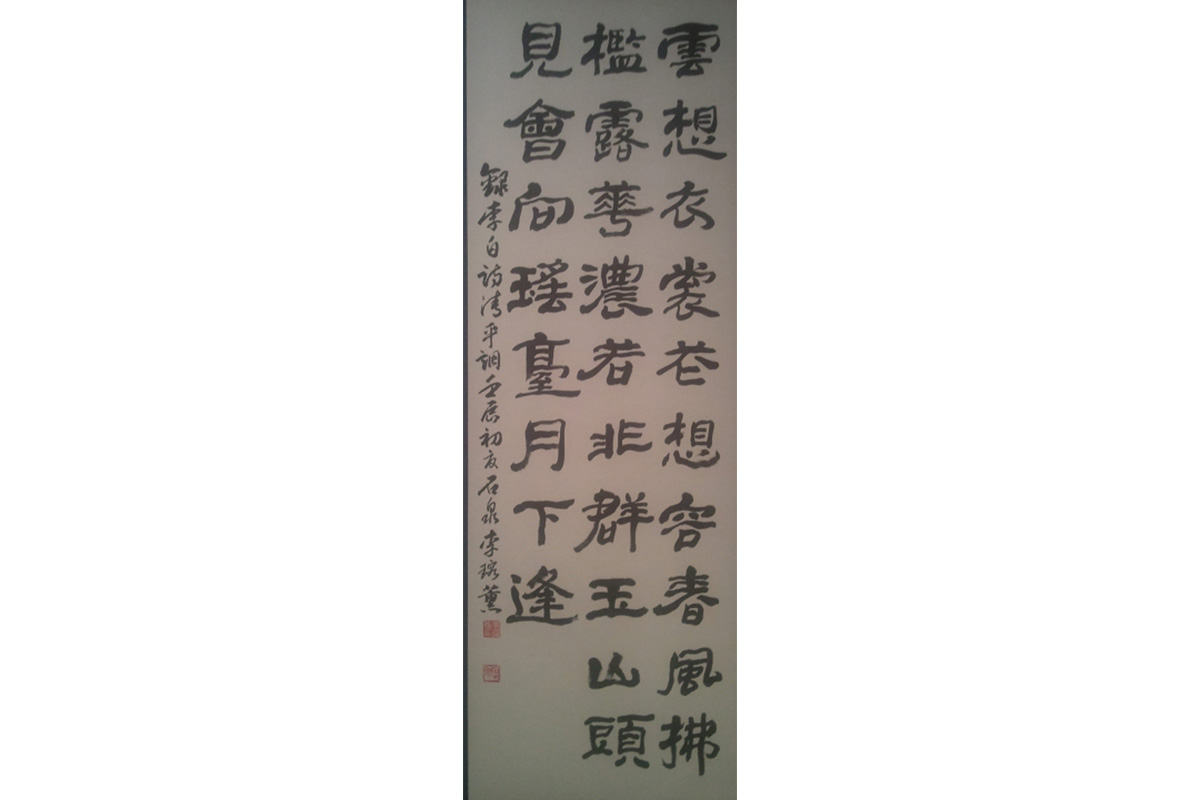 雲想衣裳花想容春風拂
檻露華濃若非群玉山頭
見會向瑤臺月下逢
錄李白詩清平調壬辰初夏石泉李瑢薰